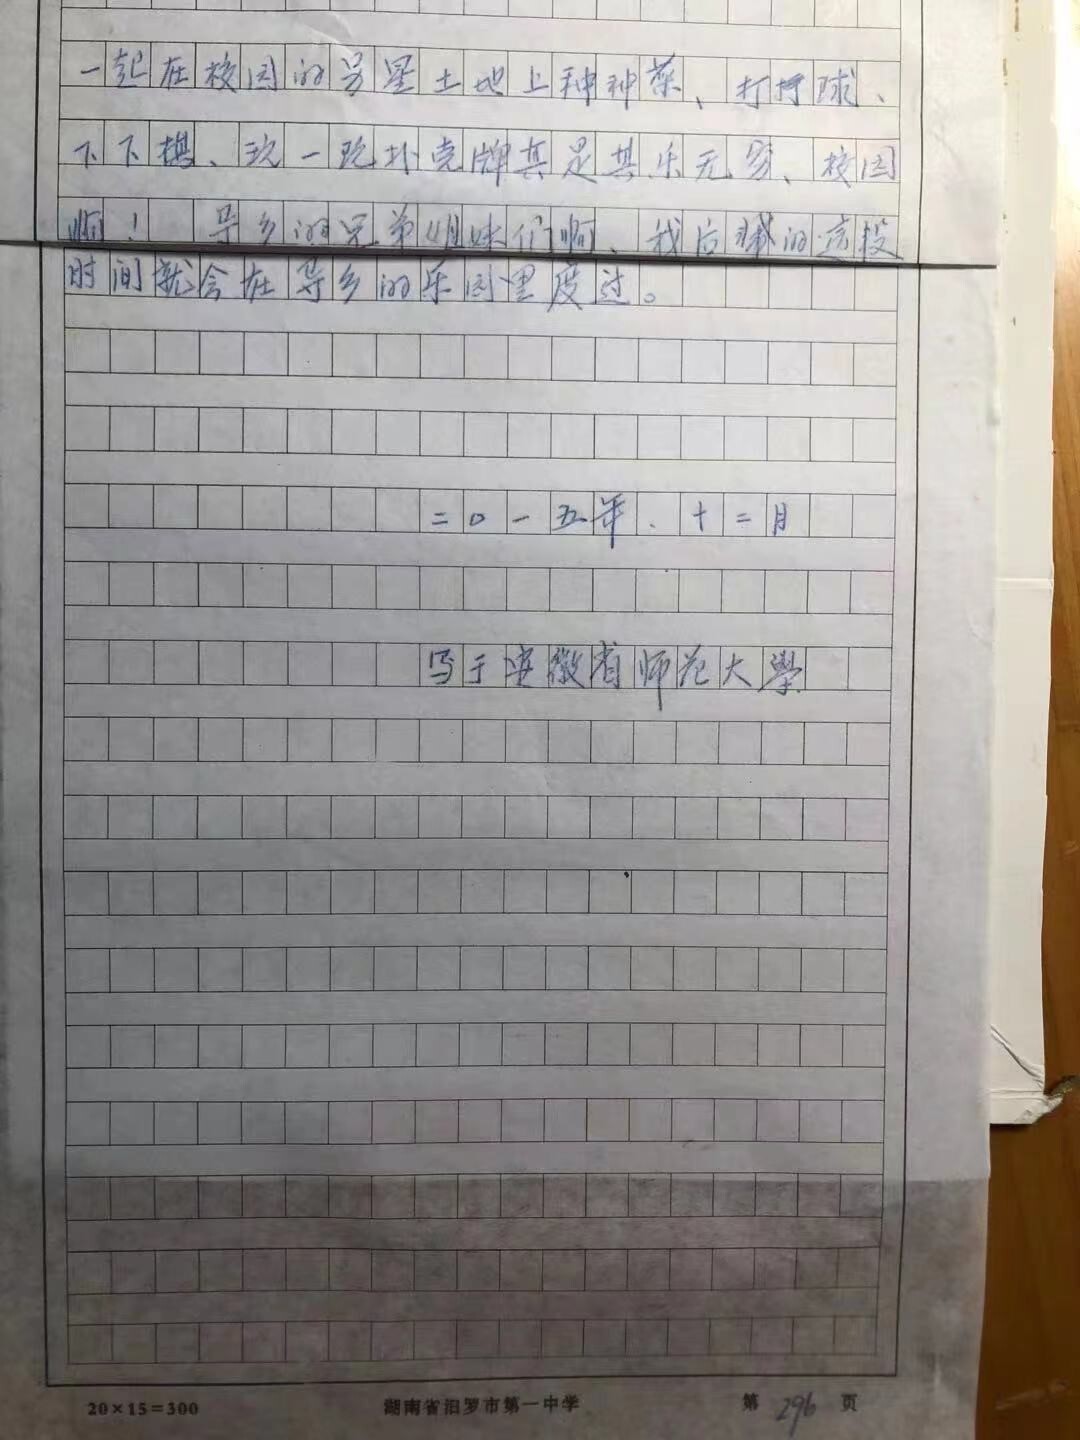 一起在校园的另星土地上种种菜、打打球、
下下棋、玩一玩扑克牌真是其乐无穷、校园
啊！导乡的兄弟姐妹们啊、我后的这段
时间就会在导乡的乐园里度过。
二〇一五年.十二月
写于安徽省师范大學
20×15=300 湖南省汨罗市第一中学 第296页